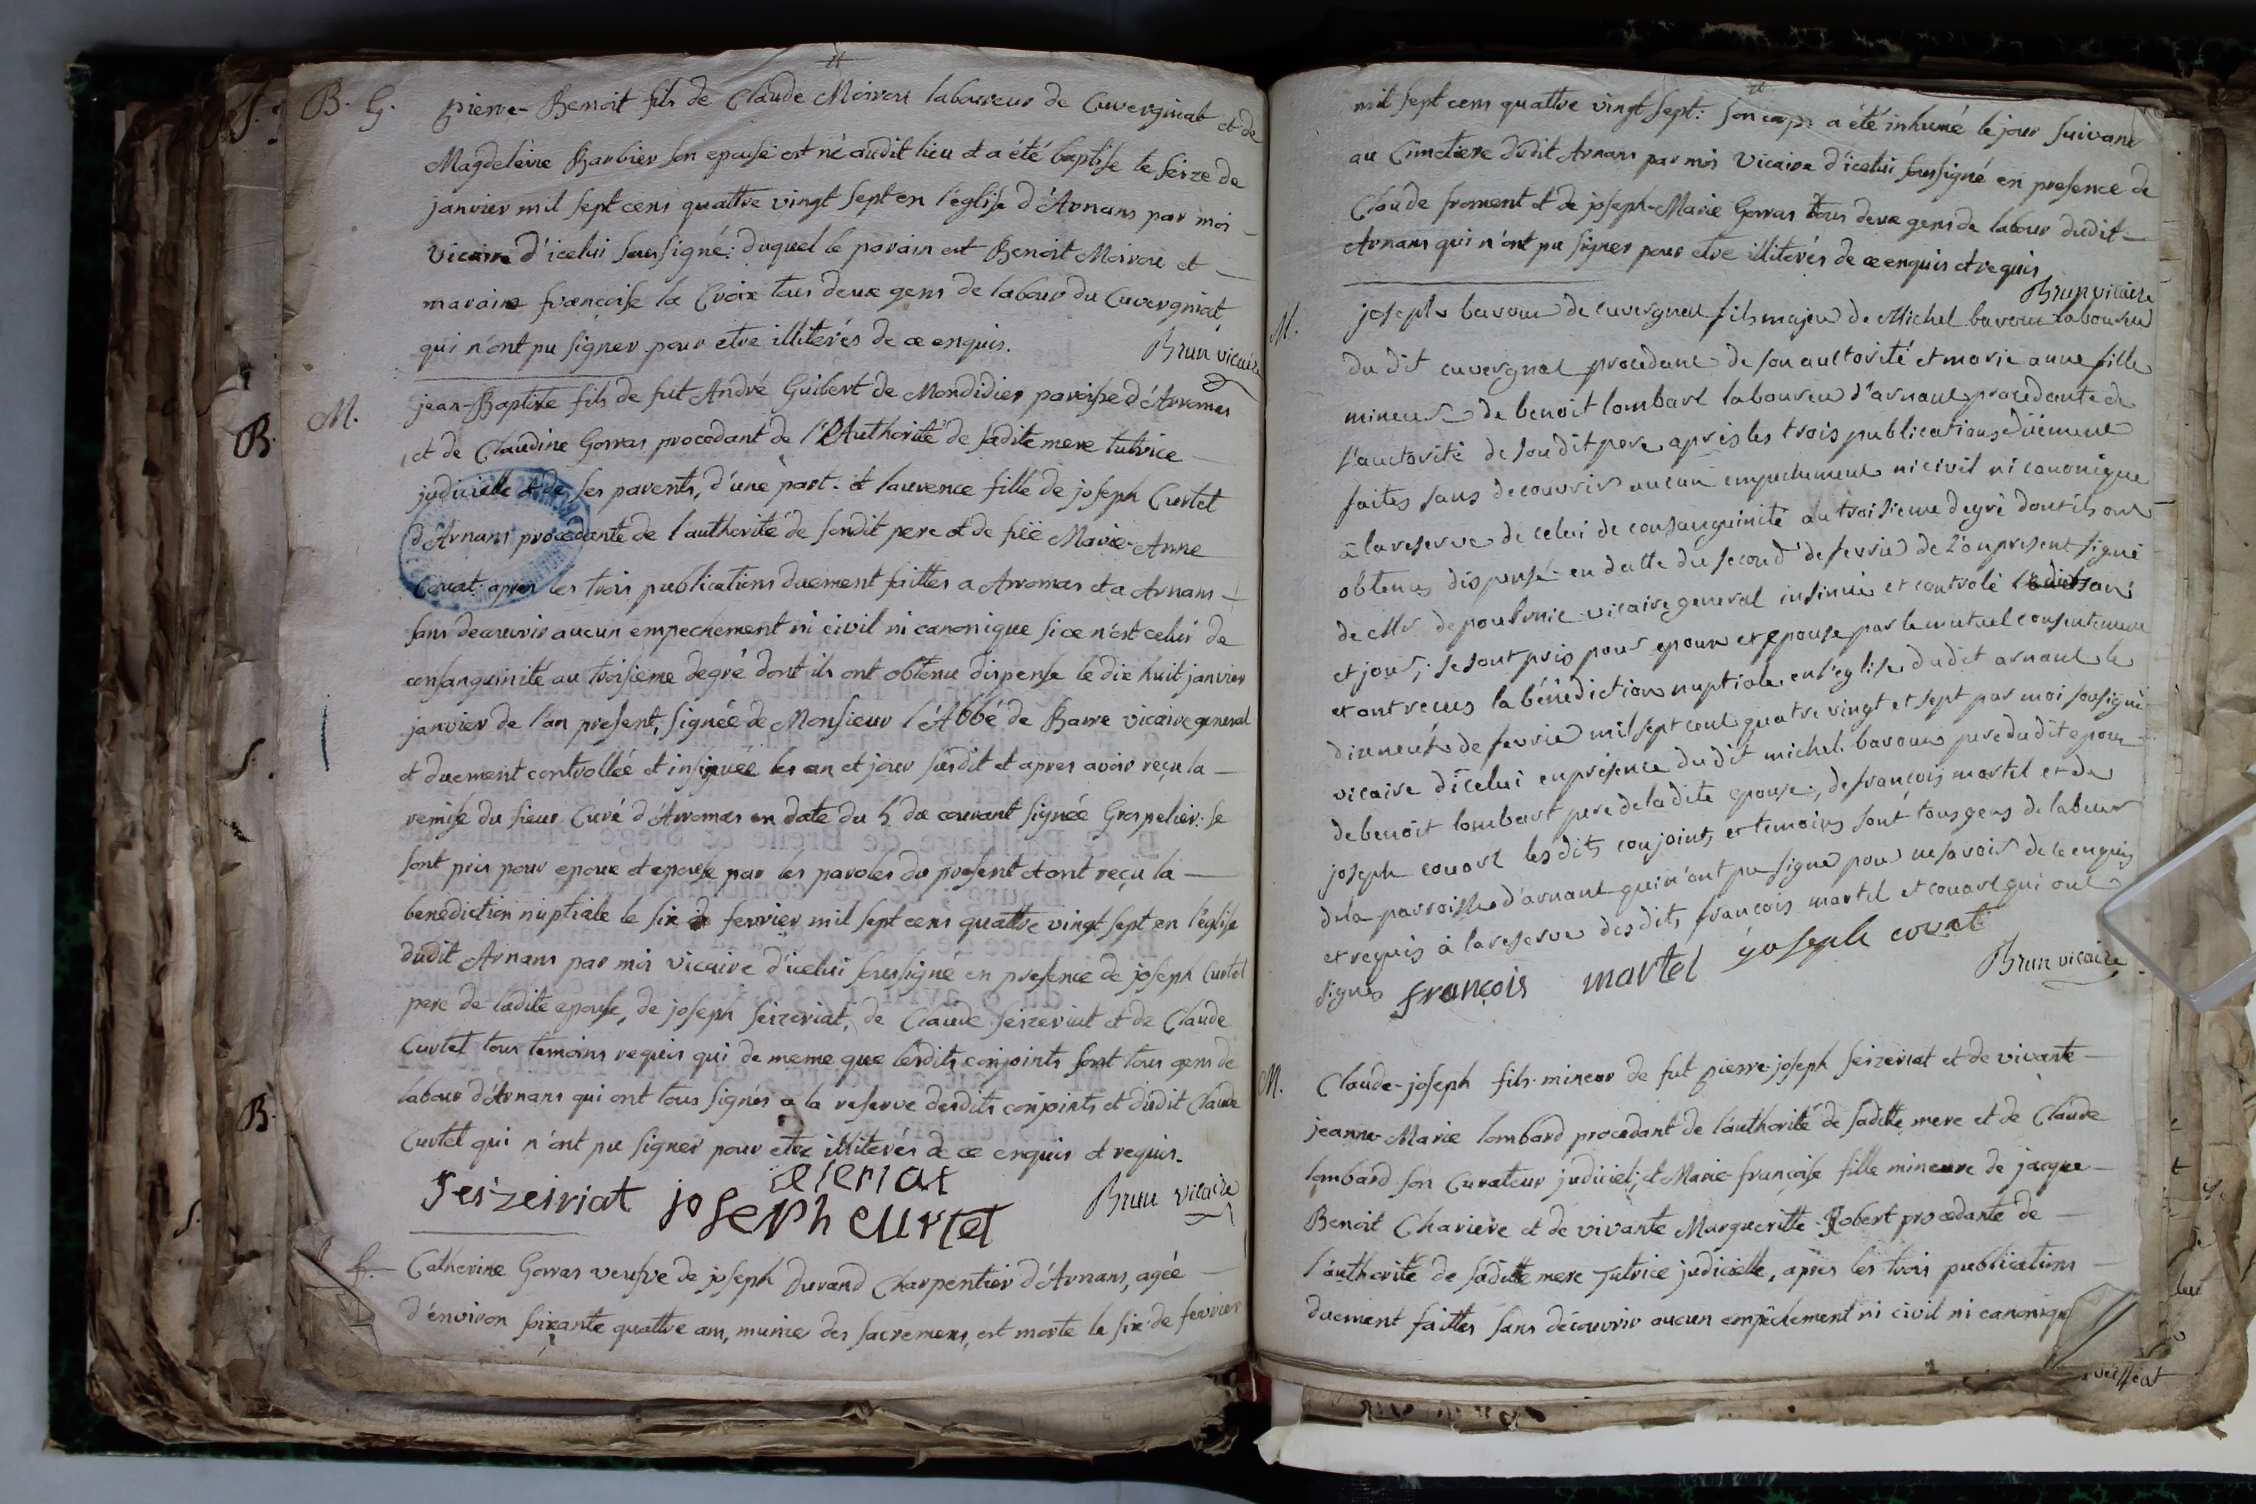 B. G. pierre-Benoit fils de Claude Moirou laboureur de Cuvergniat et de
Magdeleine Barbier son epouse est né audit lieu et a été baptise le seize de
janvier mil sept cens quattre vingt sept en l'eglise d'Arnans par moi
vicaire d'icelui soussigné: duquel le parain est Benoit Moirou et
maraine françoise la Croix tous deux gens de labour du Cuvergniat
qui n'ont pu signer pour etre illiterés de ce enquis.
Brun vicaire
M. jean-Baptiste fils de fut André Guibert de Mondidier paroisse d'Arromas
et de Claudine Gorras procedant de l'Authorité de sadite mere tutrice
judicielle et de ses parents, d'une part. et laurence fille de joseph Curtet
d'Arnans procedante de l'authorité de sondit pere et de füe Marie-Anne
Couat. apres les trois publications duement faittes a Arromas et a Arnans
sans decouvrir aucun empechement ni civil ni canonique si ce n'est celui de
consanguinité au troisieme degré dont ils ont obtenu dispense le dix huit janvier
janvier de l'an present, signée de Monsieur l'Abbé de Barre vicaire general
et duement controllée et insinuée les an et jour susdit et apres avoir reçu la
remise du sieur Curé d'Arromas en date du 5 du courant signée Grospelier: se
sont pris pour epoux et epouse par les paroles du present et ont reçu la
benediction nuptiale le six de fevrier mil sept cens quattre vingt sept en l'eglise
dudit Arnans par moi vicaire d'icelui soussigné en presence de joseph Curtet
pere de ladite epouse, de joseph seizeriat, de Claude seizeriat et de Claude
Curtet tous temoins requis qui de meme que lesdits conjoints sont tous gens de
labour d'Arnans qui ont tous signés a la reserve desdits conjoints et dudit Claude
Curtet qui n'ont pu signer pour etre illiterés de ce enquis et requis.
seizeiriat joseph curtet
Brun vicaire
Catherine Gorras veufve de joseph Durand Charpentier d'Arnans, agée
d'environ soixante quattre ans, munie des sacremens, est morte le six de fevrier
mil sept cens quattre vingt sept: son corps a été inhumé le jour suivant
au Cimetiere dudit Arnans par moi vicaire d'icelui soussigné en presence de
Claude froment et de joseph-Marie Gorras tous deux gens de labour dudit
Arnans qui n'ont pu signer pour etre illiterés de ce enquis et requis
Brun vicaire
M. joseph bavoux de cuvergnat fils majeur de Michel bavoux laboureur
du dit cuvergnat procedant de son auctorité et marie anne fille
mineure de benoit lombart laboureur d'arnant procedante de
l'auctorité de son dit pere apris les trois publications düement
faites sans decouvrir aucun empechement ni civil ni canonique
à la reserve de celui de consanguinité au troisieme degré dont ils ont
obtenus dispense en datte du second de fevrier de l'an present signé
de Mr de poulmic vicaire general insinué et controlé
et jour; se sont pris pour epoux et epouse par le mutuel consentement
et ont recus la bénédiction nuptiale en l'eglise dudit arnant le
dixneuf de fevrier mil sept cent quatre vingt et sept par moi sousigné
vicaire dicelui en présence dudit michel bavoux pere dudit epoux
de benoit lombart pere de la dite epouse, de françois martel et de
joseph couart les dits conjoints et temoins sont tous gens de labeur
de la parroisse d'arnant qui n'ont pu signer pour ne savoir de ce enquis
et requis à la reserve desdits françois martel et couart qui ont
signés françois martel joseph couat
Brun vicaire
M. Claude-joseph fils mineur de fut pierre-joseph seizeriat et de vivante
jeanne-Marie lombard procedant de l'authorité de sadite mere et de Claude
lombard son Curateur judiciel; et Marie-françoise fille mineure de jacque
Benoit Chariere et de vivante Margueritte Robert procedante de
l'authorité de saditte mere Tutrice judicielle, apres les trois publications
duement faittes sans découvrir aucun empêchement ni civil ni canonique